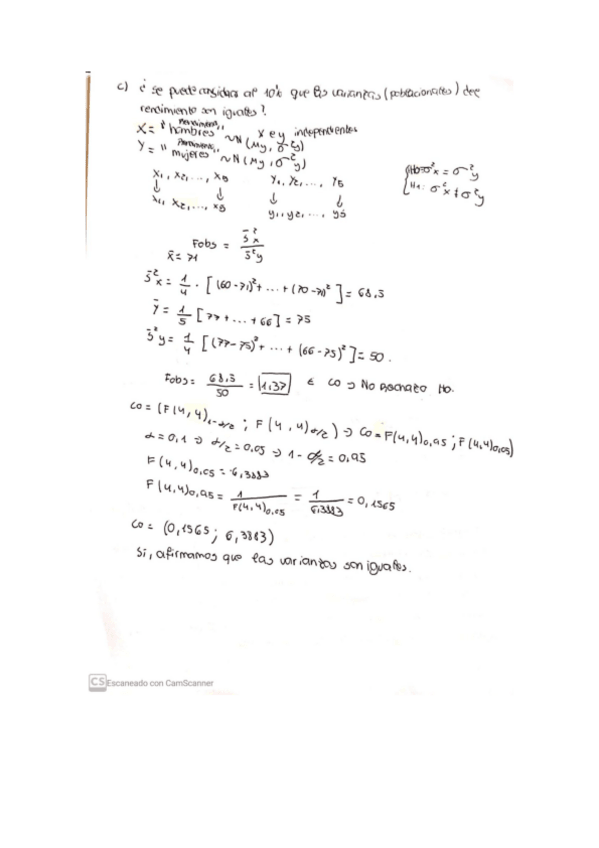 c) ¿ se puede considerar al 10% que las varianzas (poblacionales) del
rendimiento son iguales?
X = "Rendimiento hombres" ~ N(My, σ²y) X e y independientes
Y = " mujeres" ~ N(My, σ²y)
X₁, X₂, ..., X₅ Y₁, Y₂, ..., Y₅
↓ ↓ ↓ ↓
x₁, x₂, ..., x₅ y₁, y₂, ..., y₅
H₀: σ²x = σ²y
H₁: σ²x ≠ σ²y
Fobs = s̄²x / s̄²y
x̄ = 71
s̄²x = 1/4 · [(60-71)² + ... + (70-71)²] = 68.5
ȳ = 1/5 [77 + ... + 66] = 75
s̄²y = 1/4 [(77-75)² + ... + (66-75)²] = 50.
Fobs = 68.5/50 = 1,37 ∈ C₀ ⇒ No Rechazo H₀.
C₀ = (F(4,4)₁₋α/₂ ; F(4,4)α/₂) ⇒ C₀ = F(4,4)0,95 ; F(4,4)0,05)
α = 0,1 ⇒ α/2 = 0,05 ⇒ 1 - α/2 = 0,95
F(4,4)0,05 = 6,3883
F(4,4)0,95 = 1/F(4,4)0,05 = 1/6,3883 = 0,1565
C₀ = (0,1565 ; 6,3883)
Si, afirmamos que las varianzas son iguales.
CS Escaneado con CamScanner